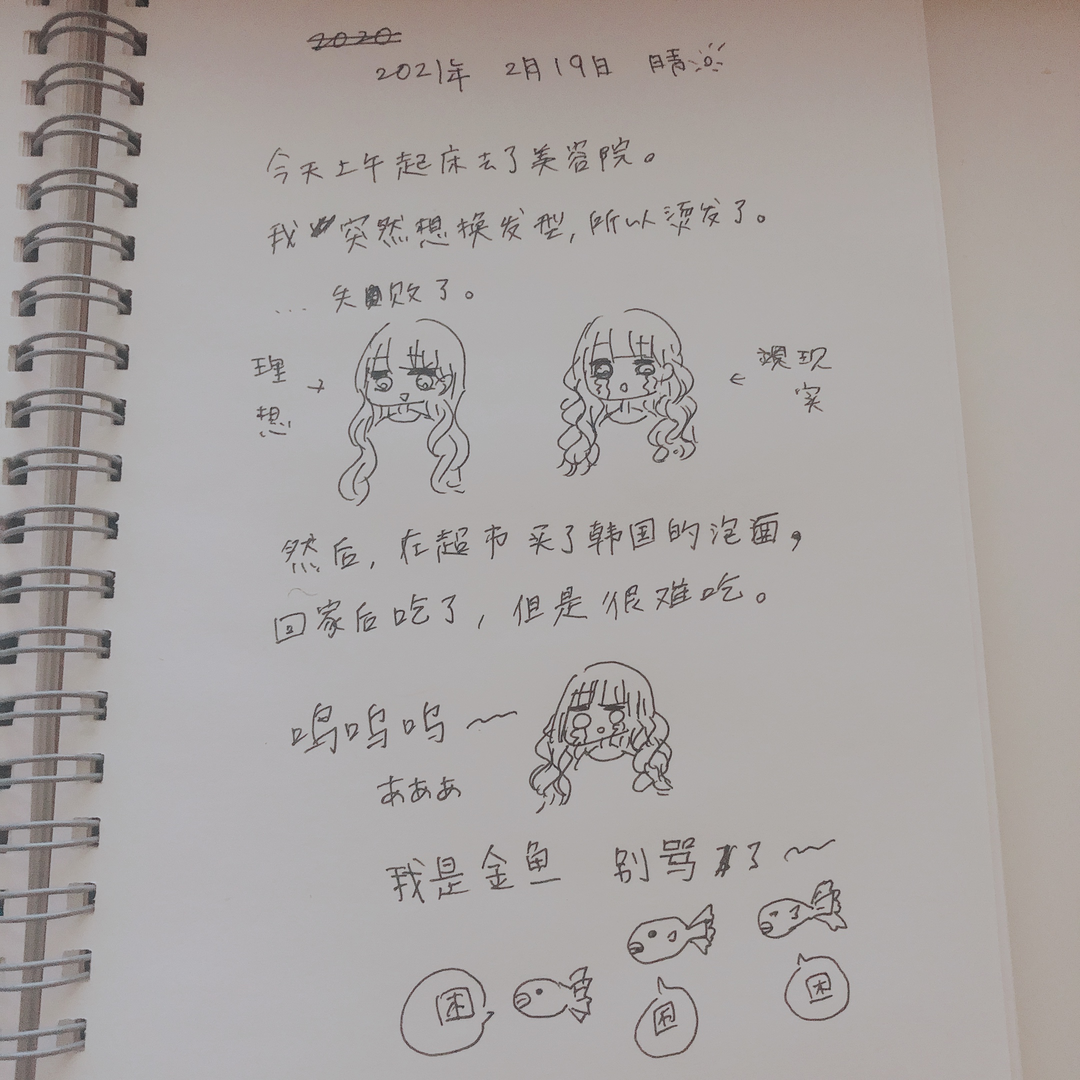 2020
2021年 2月19日 晴
今天上午起床去了美容院。
我突然想换发型,所以烫发了。
... 失败了。
理想 →
← 现实
然后,在超市买了韩国的泡面,
回家后吃了,但是很难吃。
呜呜呜~
あああ
我是金鱼 别骂了~
困
困
困